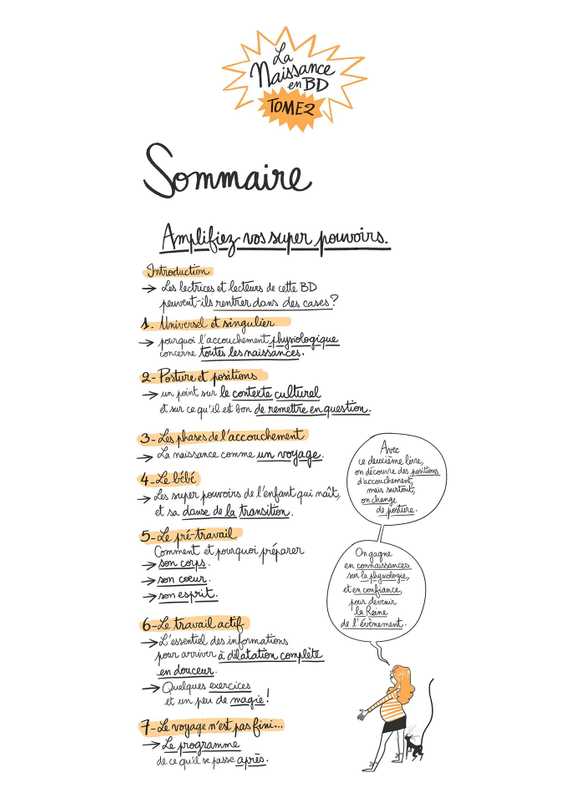 La
Naissance
en BD
TOME 2
Sommaire
Amplifiez vos super pouvoirs.
Introduction
→ Les lectrices et lecteurs de cette BD
peuvent-ils rentrer dans des cases ?
1. Universel et singulier
→ pourquoi l'accouchement physiologique
concerne toutes les naissances.
2-Posture et positions
→ un point sur le contexte culturel
et sur ce qu'il est bon de remettre en question.
3-Les phases de l'accouchement
→ La naissance comme un voyage.
4-Le bébé
→ Les super pouvoirs de l'enfant qui naît,
et sa danse de la transition.
5-Le pré-travail
Comment et pourquoi préparer
→ son corps.
→ son coeur.
→ son esprit.
6-Le travail actif
→ L'essentiel des informations
pour arriver à dilatation complète
en douceur.
→ Quelques exercices
et un peu de magie !
7-Le voyage n'est pas fini...
→ Le programme
de ce qu'il se passe après.
Avec
ce deuxième livre,
on découvre des positions
d'accouchement,
mais surtout,
on change
de posture.
On gagne
en connaissances
sur la physiologie,
et en confiance,
pour devenir
la Reine
de l'évènement.